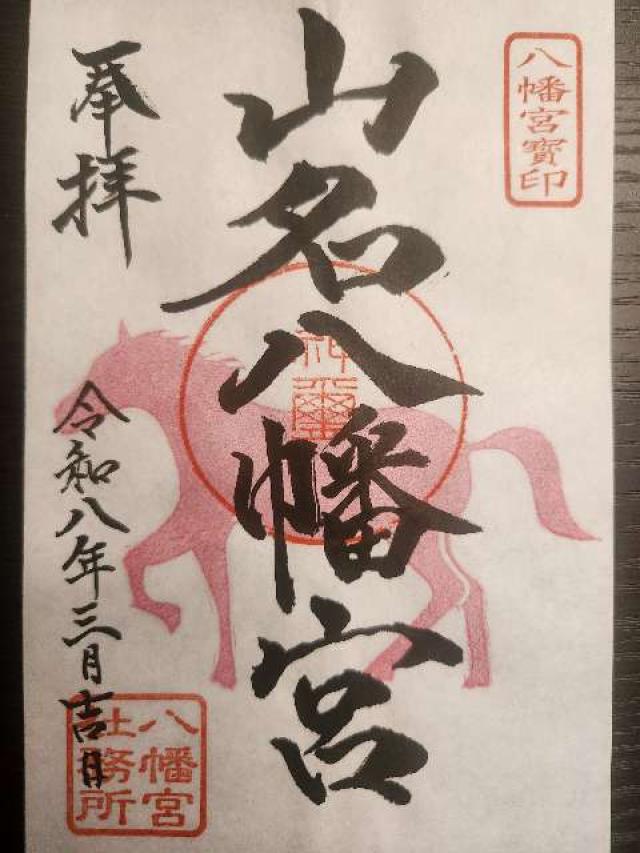 八幡宮寶印
山名八幡宮
神璽
奉拝
令和八年三月吉日
八幡宮
社務所